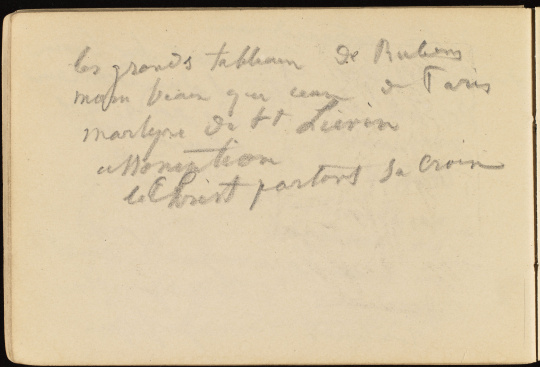 les grands tableaux de Rubens
moin beaux que ceux de Paris
martyre de St Lievin
assomption
le Christ portant sa croix